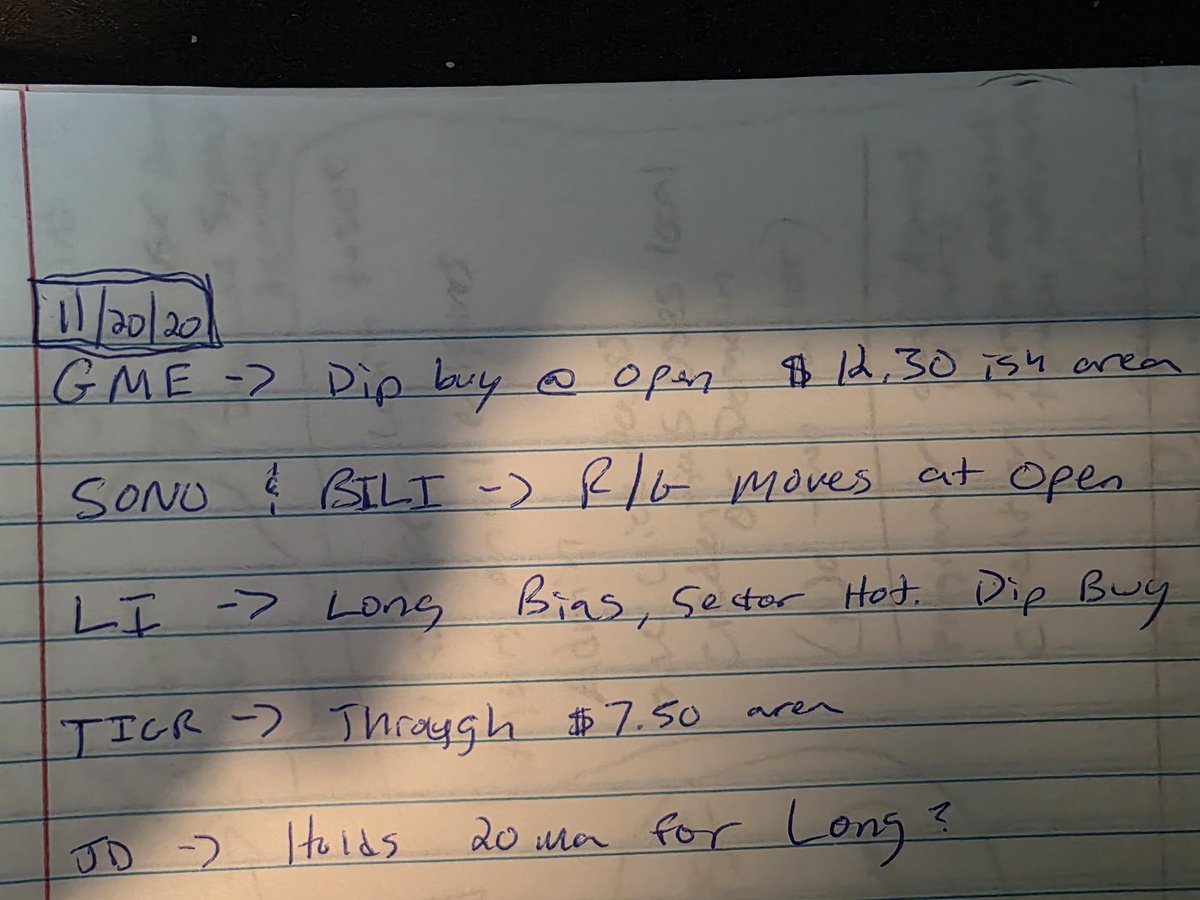 11/20/20
GME -> Dip buy @ open $12.30 ish area
SONO & BILI -> R/G moves at open
LI -> Long Bias, Sector Hot. Dip Buy
TIGR -> Through $7.50 area
JD -> Holds 20 ma for Long?